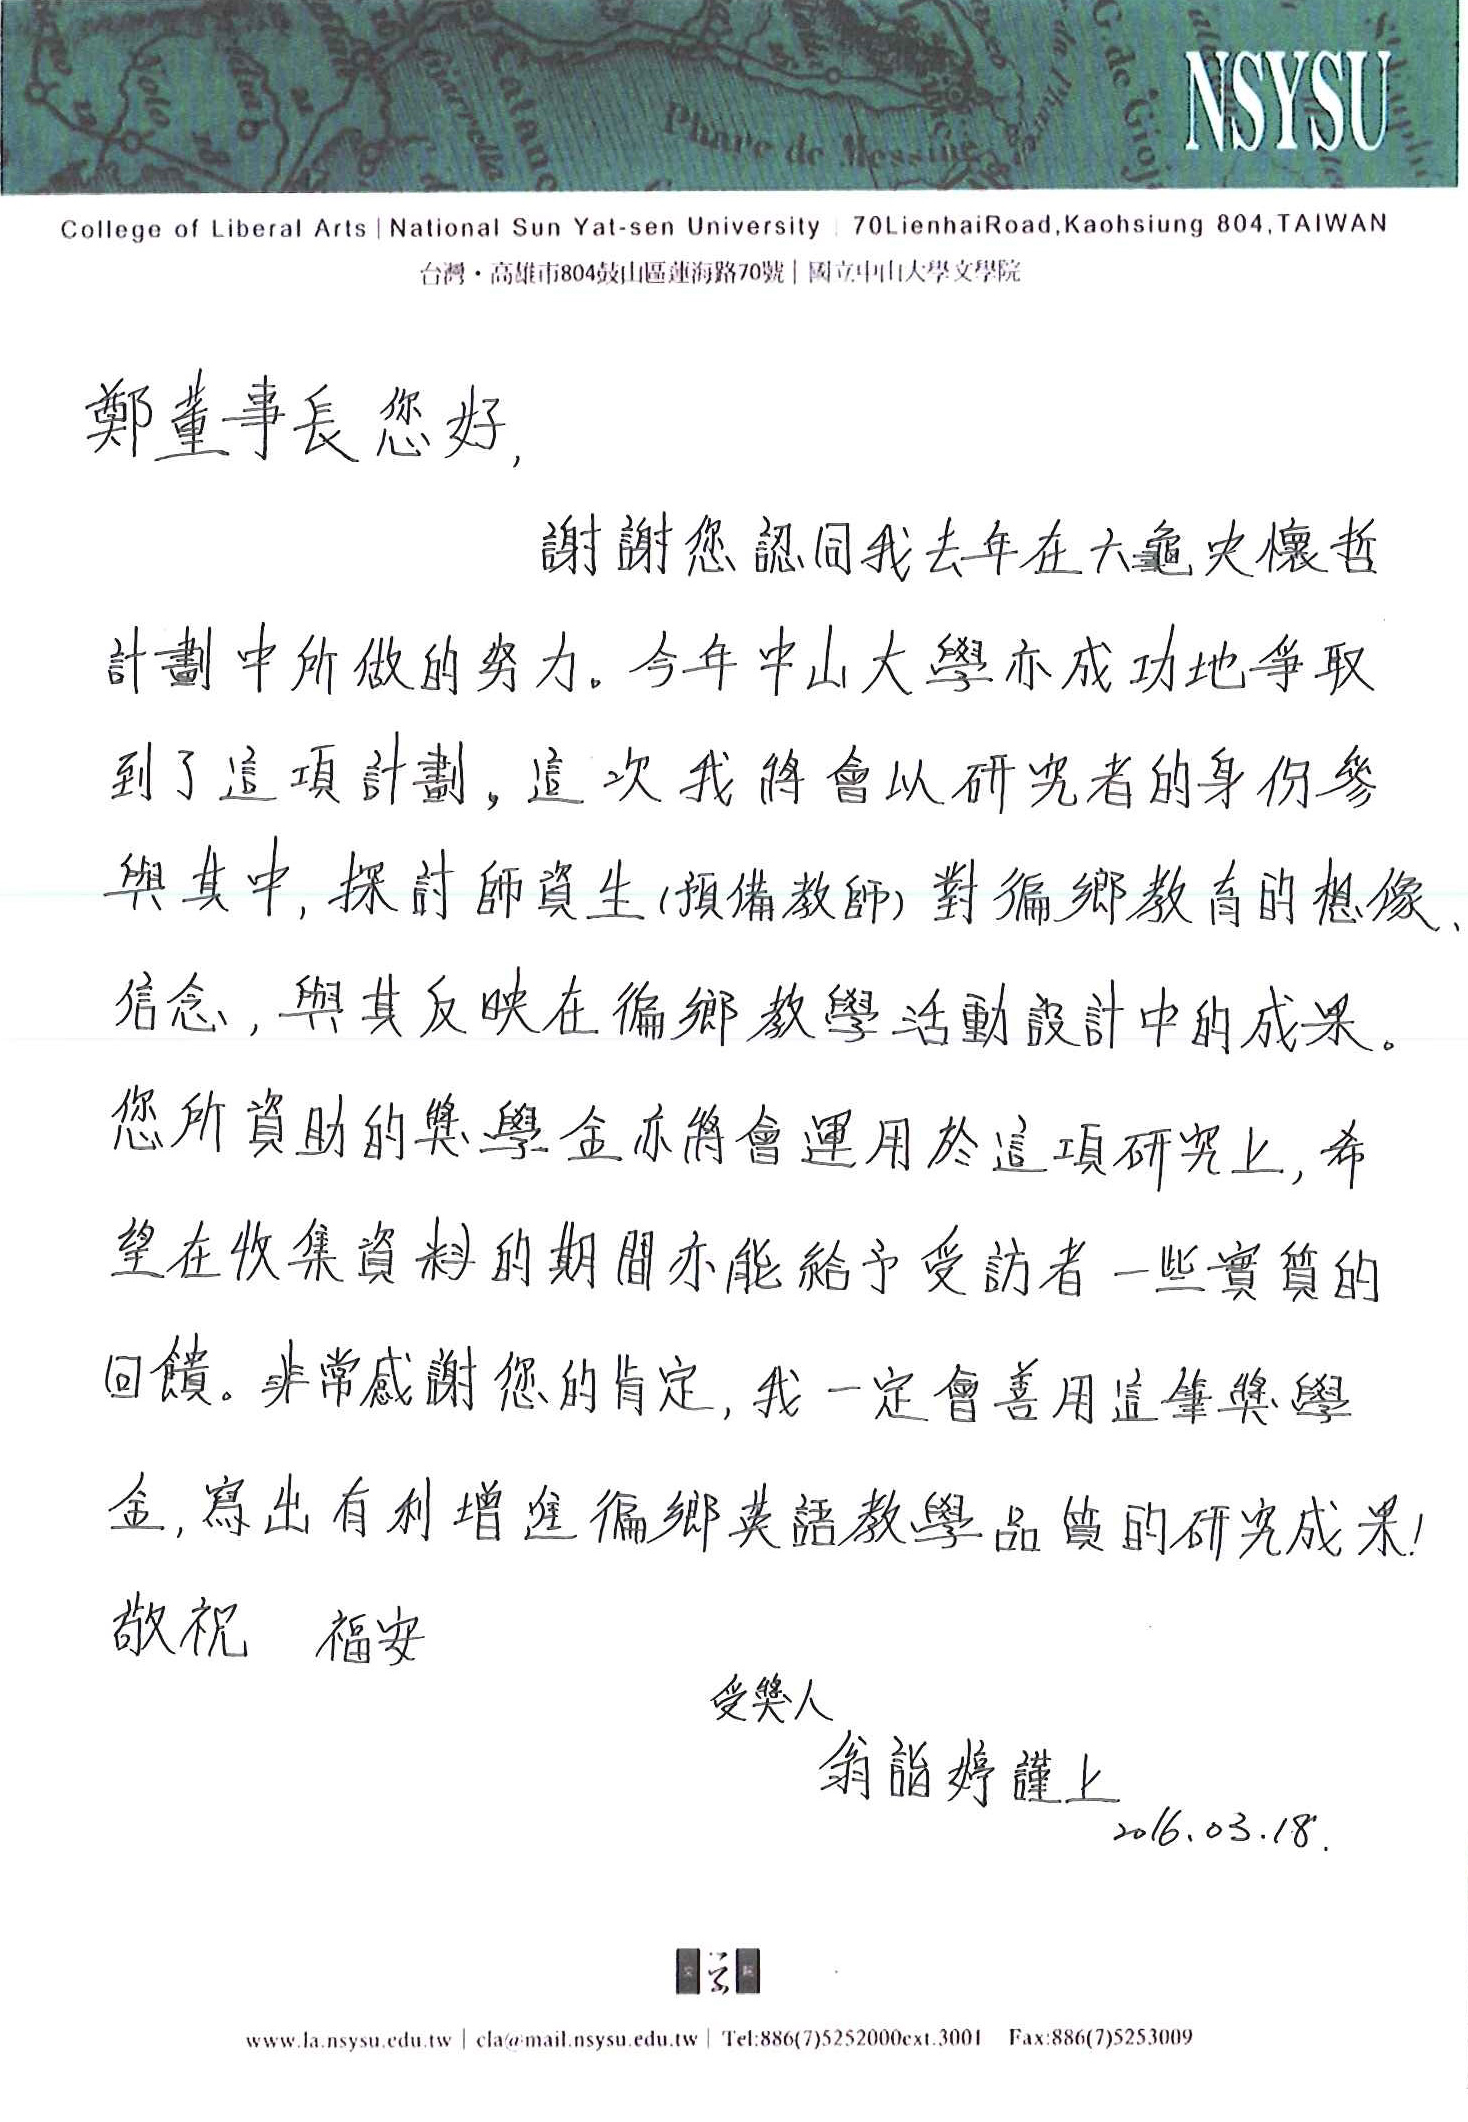 NSYSU
Phare de Messine
College of Liberal Arts | National Sun Yat-sen University | 70LienhaiRoad,Kaohsiung 804,TAIWAN
台灣・高雄市804鼓山區蓮海路70號 | 國立中山大學文學院
鄭董事長您好,
謝謝您認同我去年在六龜史懷哲
計劃中所做的努力。今年中山大學亦成功地爭取
到了這項計劃,這次我將會以研究者的身份參
與其中,探討師資生(預備教師)對徧鄉教育的想像、
信念,與其反映在徧鄉教學活動設計中的成果。
您所資助的獎學金亦將會運用於這項研究上,希
望在收集資料的期間亦能給予受訪者一些實質的
回饋。非常感謝您的肯定,我一定會善用這筆獎學
金,寫出有利增進徧鄉英語教學品質的研究成果!
敬祝 福安
受獎人
翁詣婷謹上
2016.03.18.
文 學 院
www.la.nsysu.edu.tw | cla@mail.nsysu.edu.tw | Tel:886(7)5252000ext.3001 Fax:886(7)5253009